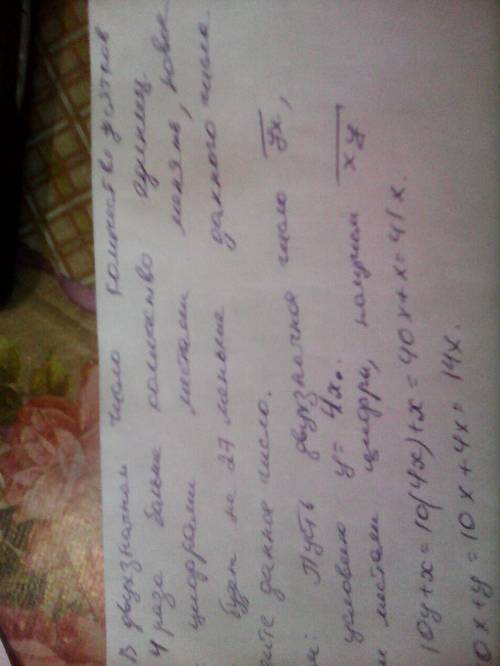 В двухзначном число количество десятков
4 раза больше количество единиц.
цифрами местами менять, новое
будет на 27 меньше данного числа.
ите данное число.
Пусть двухзначное число yx,
условию y = 4x.
местами цифры, получаем xy
10y+x = 10(4x)+x = 40x+x = 41x.
0x+y = 10x+4x = 14x.